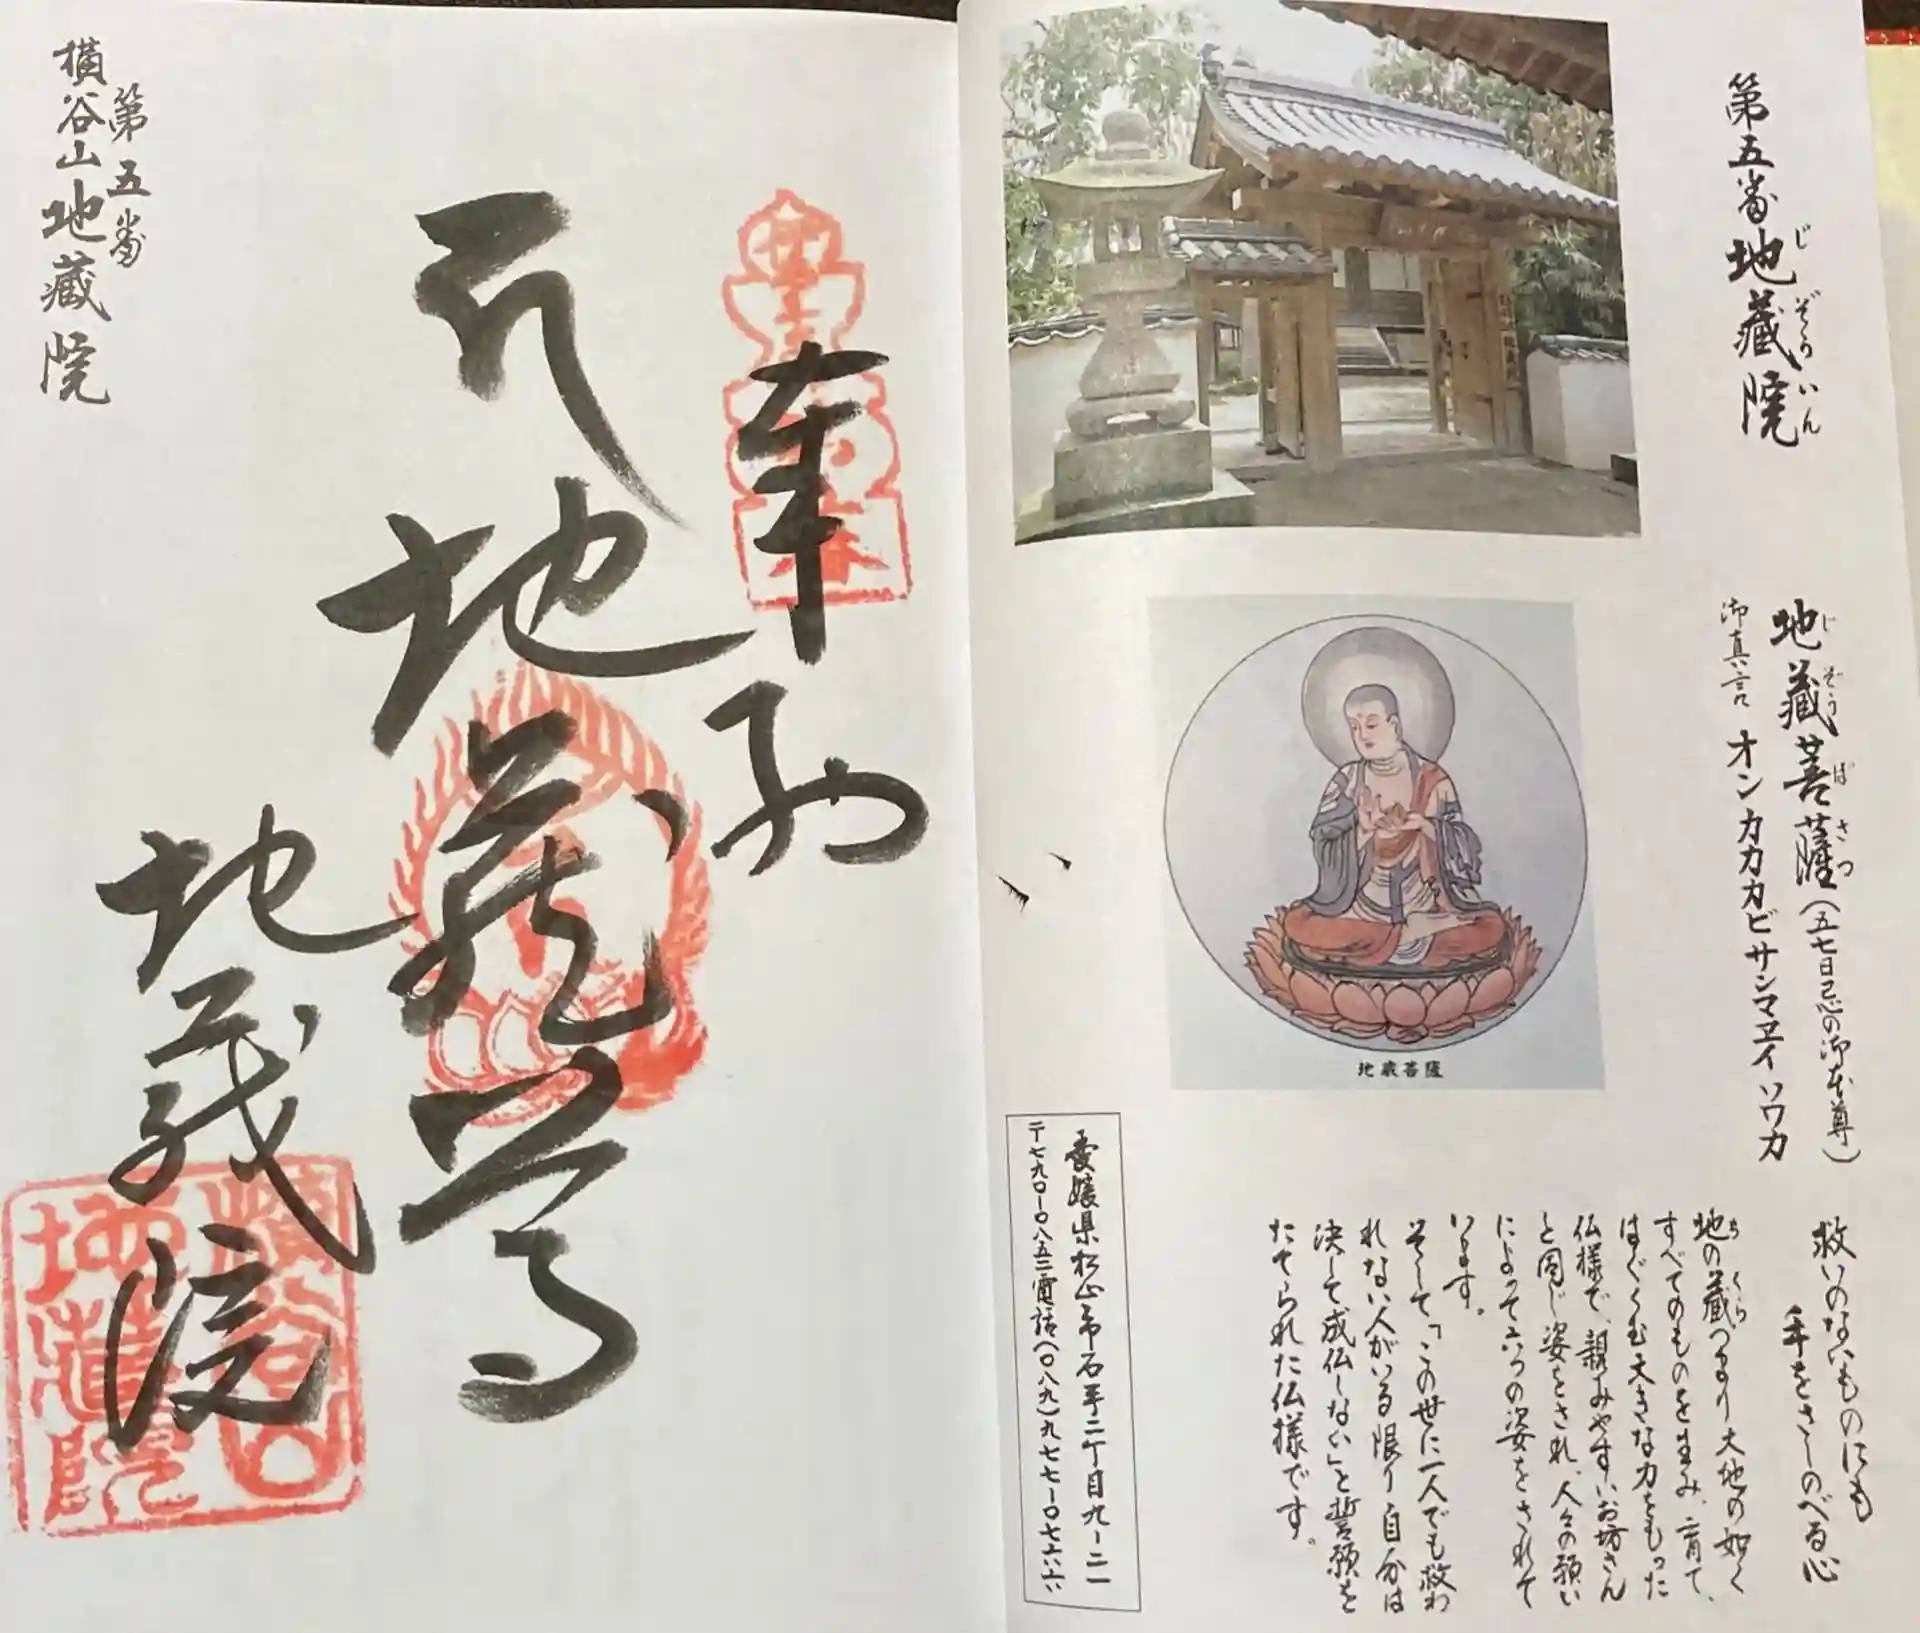 第五番 地藏院
じぞういん
地藏菩薩(五七日忌の御本尊)
じぞうぼさつ
御真言 オンカカカビサンマヱイソワカ
救いのないものにも
手をさしのべる心
地の藏つまり大地の如く
ちくら
すべてのものを生み、育て、
はぐくむ大きな力をもった
仏様で、親みやすいお坊さん
と同じ姿をされ、人々の願い
によって六つの姿をされて
います。
そして「この世に一人でも救わ
れない人がいる限り自分は
決して成仏しない」と誓願を
たてられた仏様です。
地蔵菩薩
愛媛県松山市石手二丁目九ー二一
〒七九〇ー〇八五二電話(〇八九)九七七ー〇七六六
奉納
地蔵尊
地蔵院
横谷山
地蔵院
第五番
横谷山地藏院